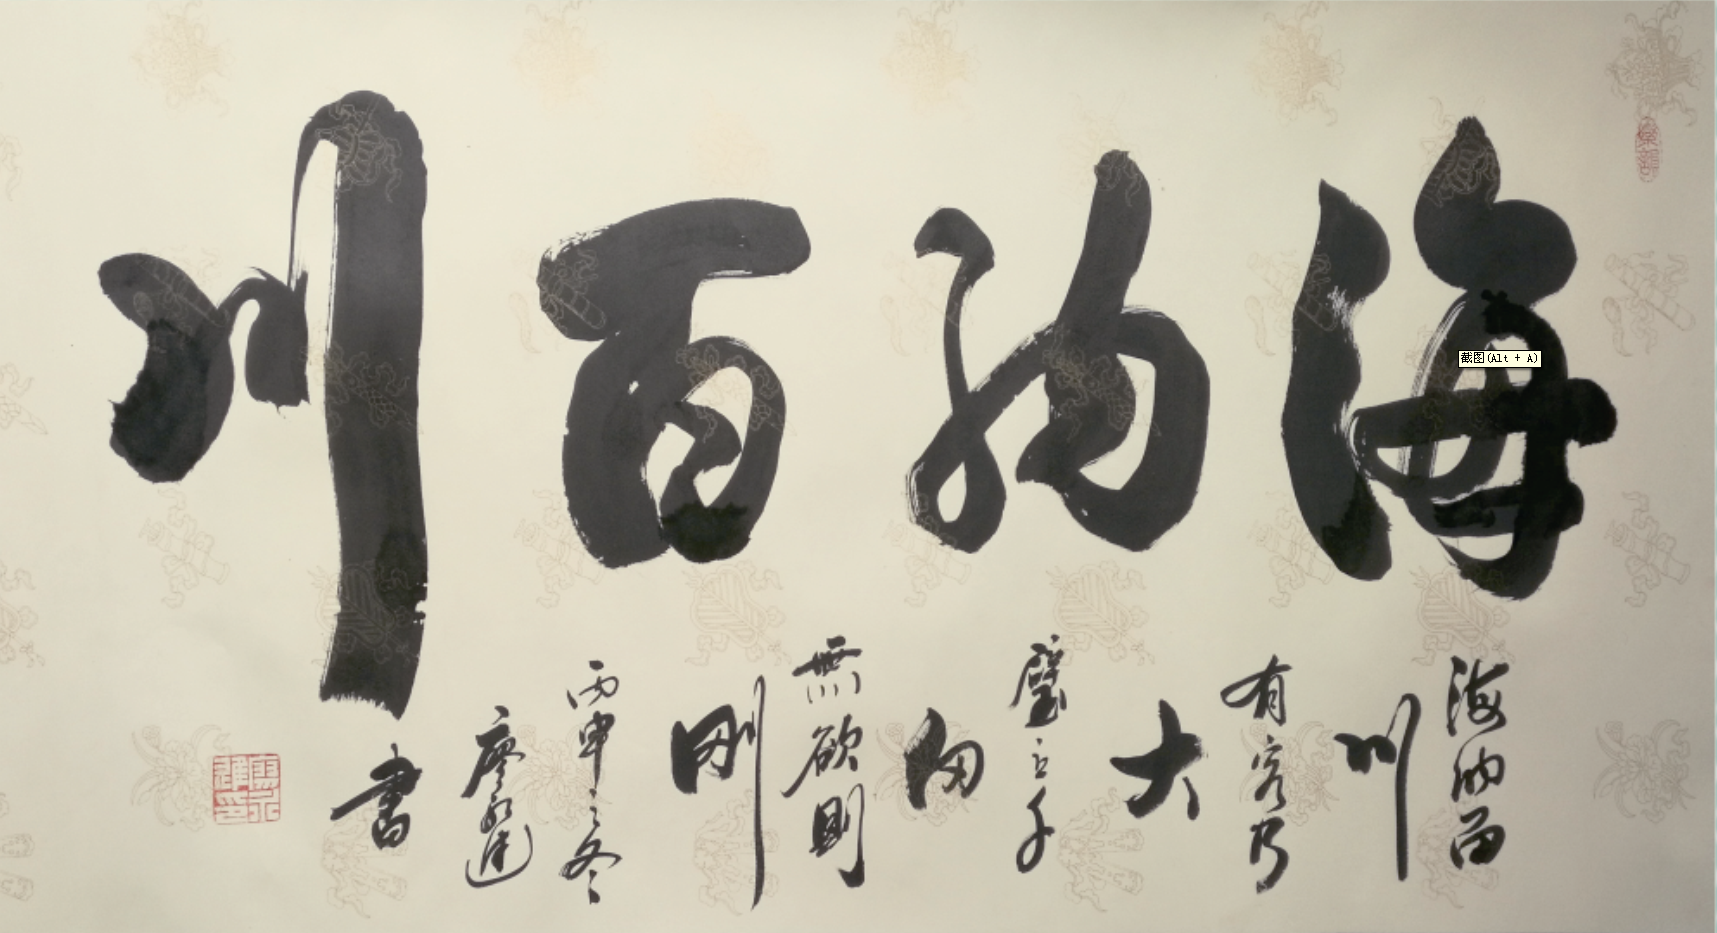 海纳百川
海纳百
川
有容乃
大
壁立千
仞
無欲則
剛
丙申之冬
廖
書
截图(Alt + A)